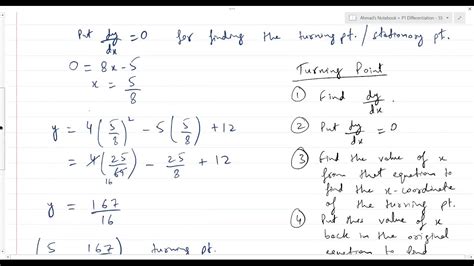 Ahmad's Notebook > P1 Differentiation - S5
Put dy/dx = 0 for finding the turning pt. / stationary pt.
0 = 8x - 5
x = 5/8
y = 4(5/8)² - 5(5/8) + 12
= 4(25/64) - 25/8 + 12
16
y = 167/16
(5 167) turning pt.
Turning Point
① Find dy/dx.
② Put dy/dx = 0
③ Find the value of x
from that equation to
find the x-coordinate
of the turning pt.
④ Put this value of x
back in the original
equation to find